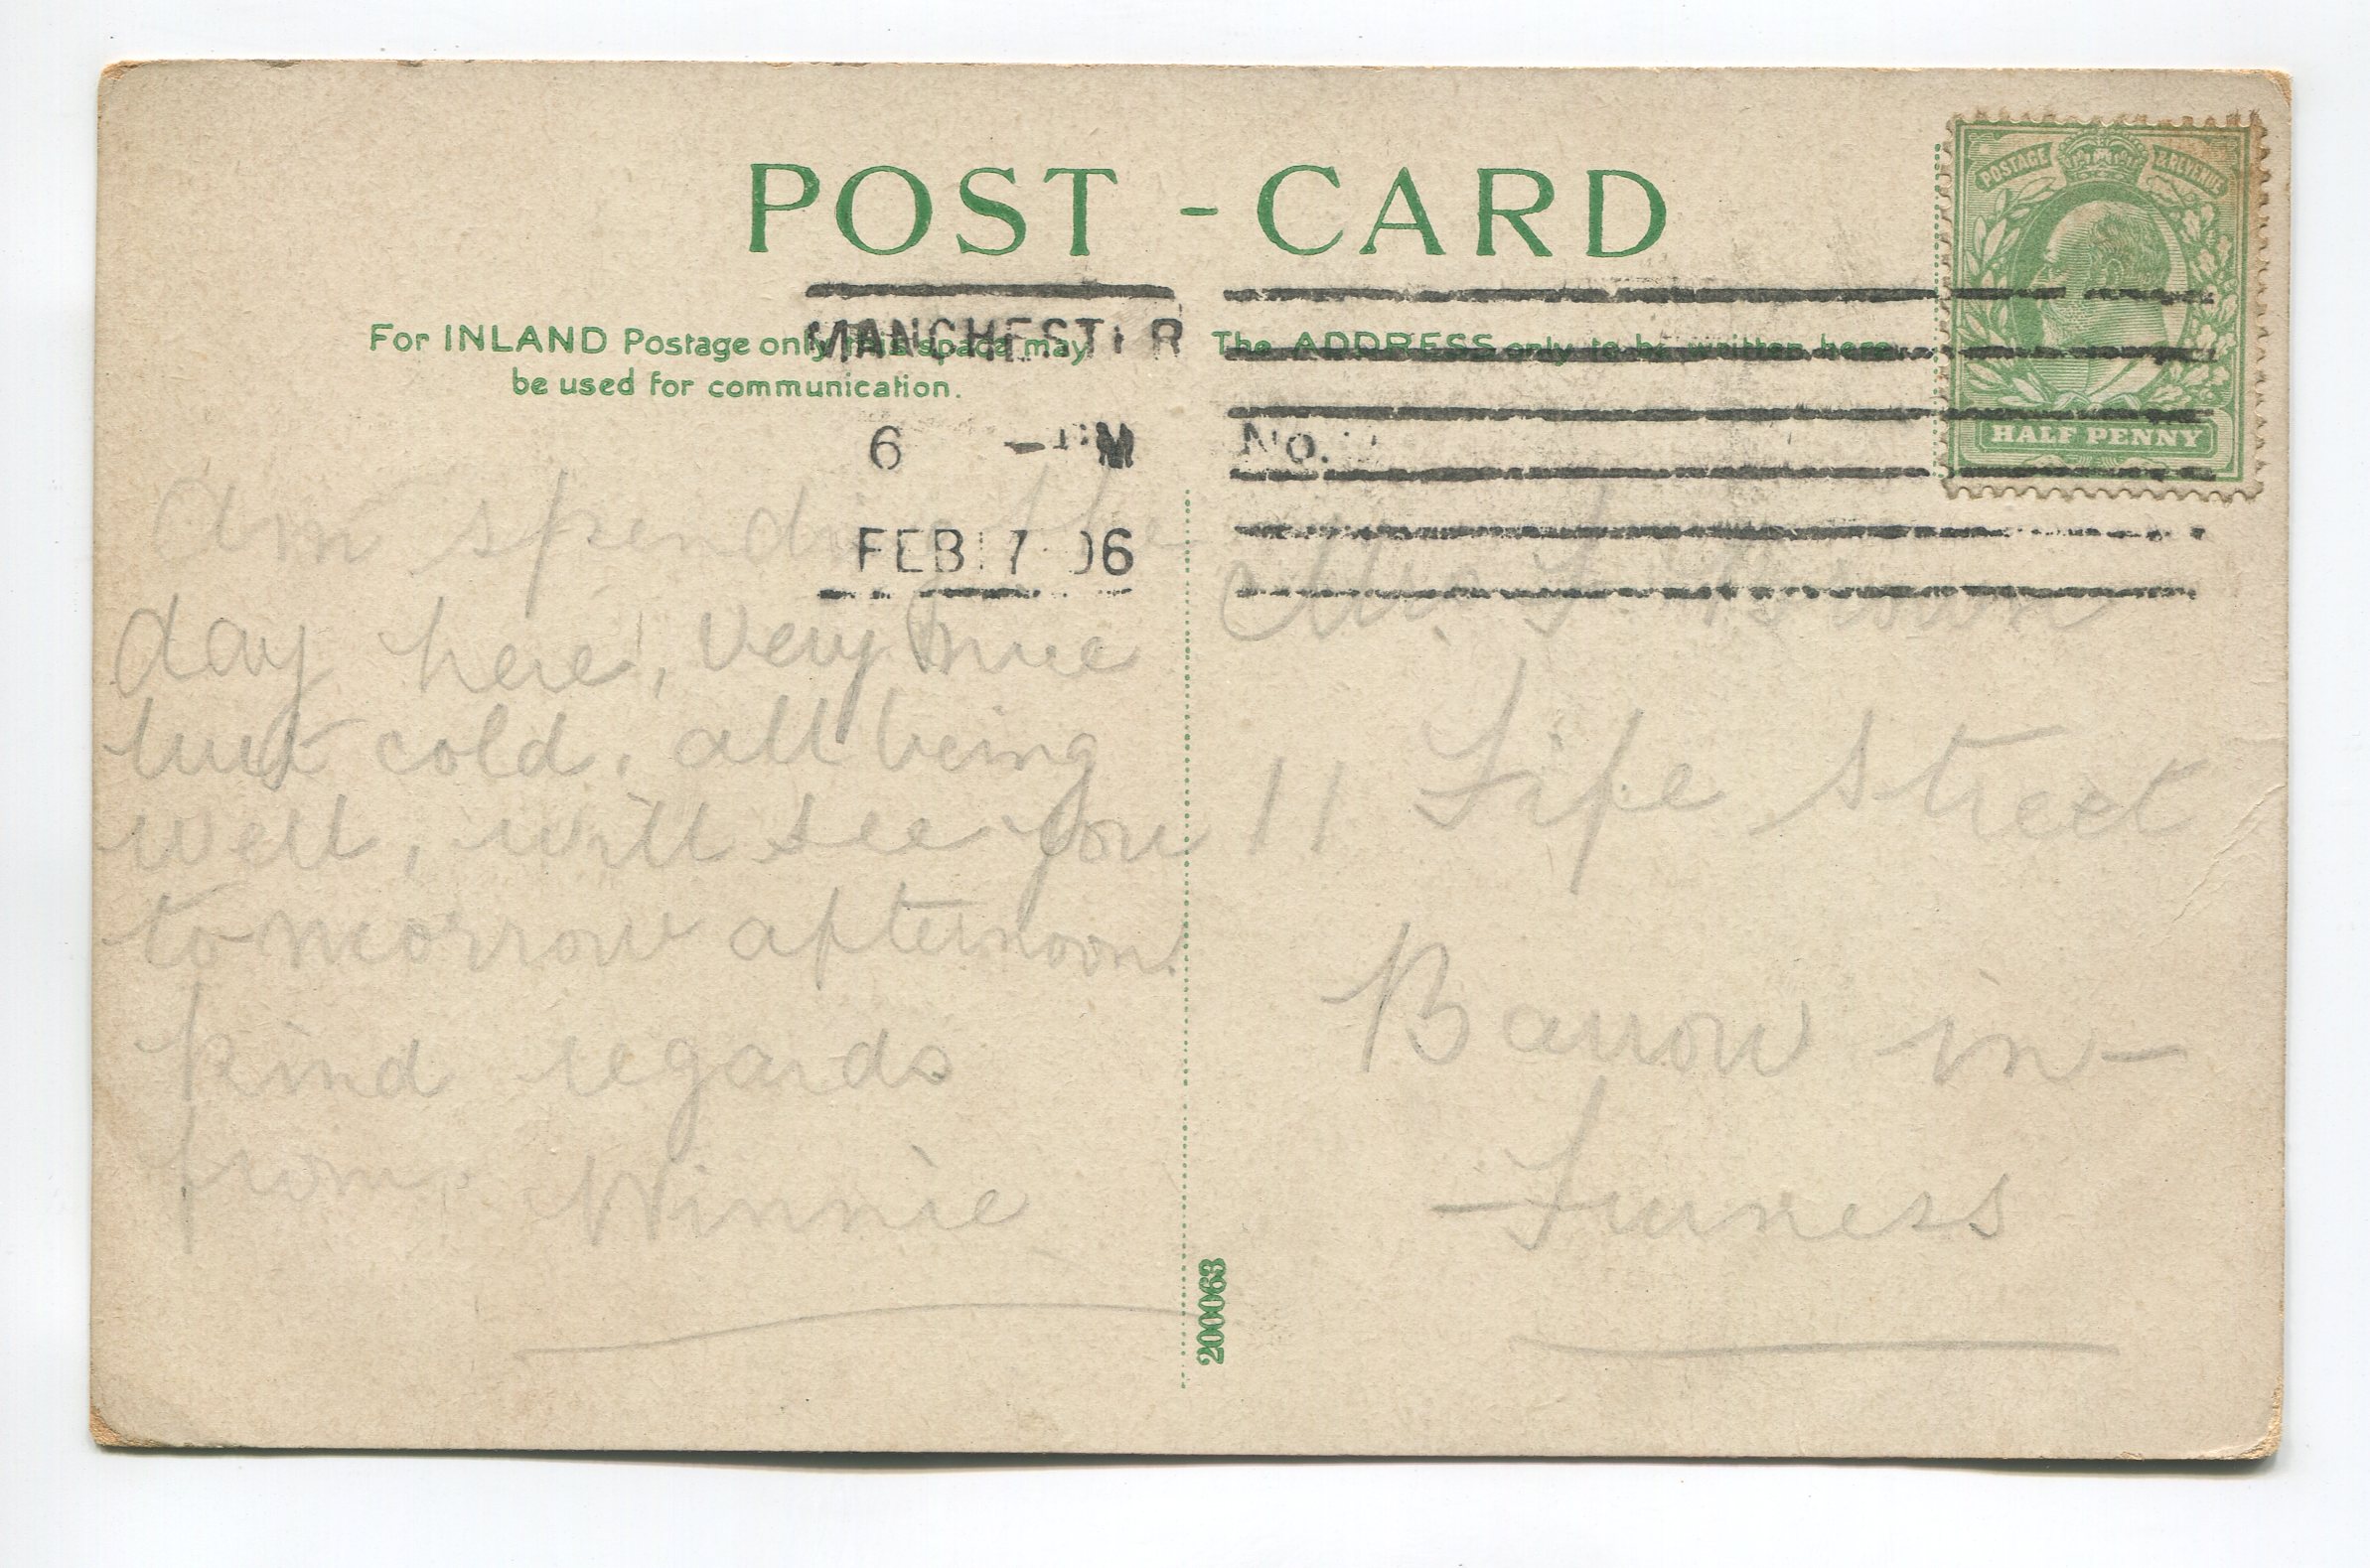 POST - CARD
POSTAGE & REVENUE
HALF PENNY
For INLAND Postage only this space may
be used for communication.
The ADDRESS only to be written here.
MANCHESTER
6 - PM
FEB 17 06
No.
Am spending the
day here, very nice
but cold, all being
well, will see you
to morrow afternoon.
kind regards
from Winnie
Brown
11 Fife Street
Barrow in-
Furness
200063